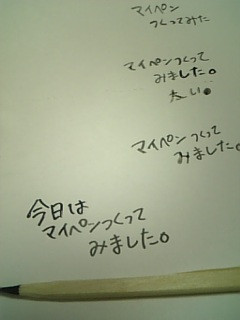 マイペン
つくってみた
マイペンつくって
みました。
太い。
マイペンつくって
みました。
今日は
マイペンつくって
みました。